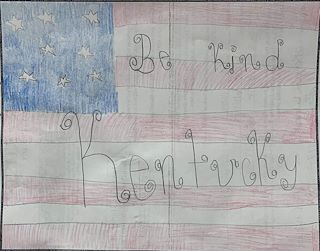 Be kind
Kentucky